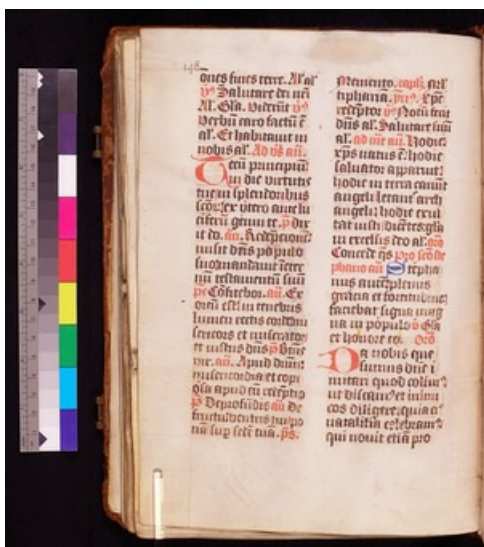 148
ones fines terre. Al̄ al̄
v̄s Salutare dei nr̄i
Al̄. Gla. Viderūt v̄s
Verbū caro factū ē
al̄. Et habitauit in
nobis al̄. Ad v̄s an̄.
Tecū principiū
in die virtutis
tue in splendoribus
scōr ex vtero ante lu
ciferū genui te. p̄s Dix
it do. an̄. Redēpcionē
misit dn̄s populo
suo mandauit ineter
nū testamentū suū
ps Cōfitebor. an̄. Ex
ortū est in tenebris
lumen rectis corde mi
sericors et miserator
et iustus dn̄s p̄s Btūs
vir. an̄. Apud dnm̄
misericordia et copi
osa apud eū redēptio
p̄s De profūdis an̄ de
fructu ventris tui po
nā sup sedē tuā. ps.
Memento. capl̄m
tiphana. Xp̄e
redēptor v̄s Notū fecit
dn̄s al̄. Salutare suū
al̄. ad an̄. Hodie
xp̄s natus ē. hodie
saluator apparuit
hodie in terra canūt
angeli letant arch
angeli hodie exul
tāt iusti dicētes gl̄a
in excelsis deo al̄. orō
Concede q̄s pro scō ste
phano an̄ Stepha
nus autē plenus
gracia et fortitudine
faciebat signa mag
na in populo v̄s Gl̄a
et honore co. Orō
Da nobis que
sumus dn̄e i
mitari quod colim
ut discam et inimi
cos diligere. quia ei
natalitia celebram
qui nouit etiā pro